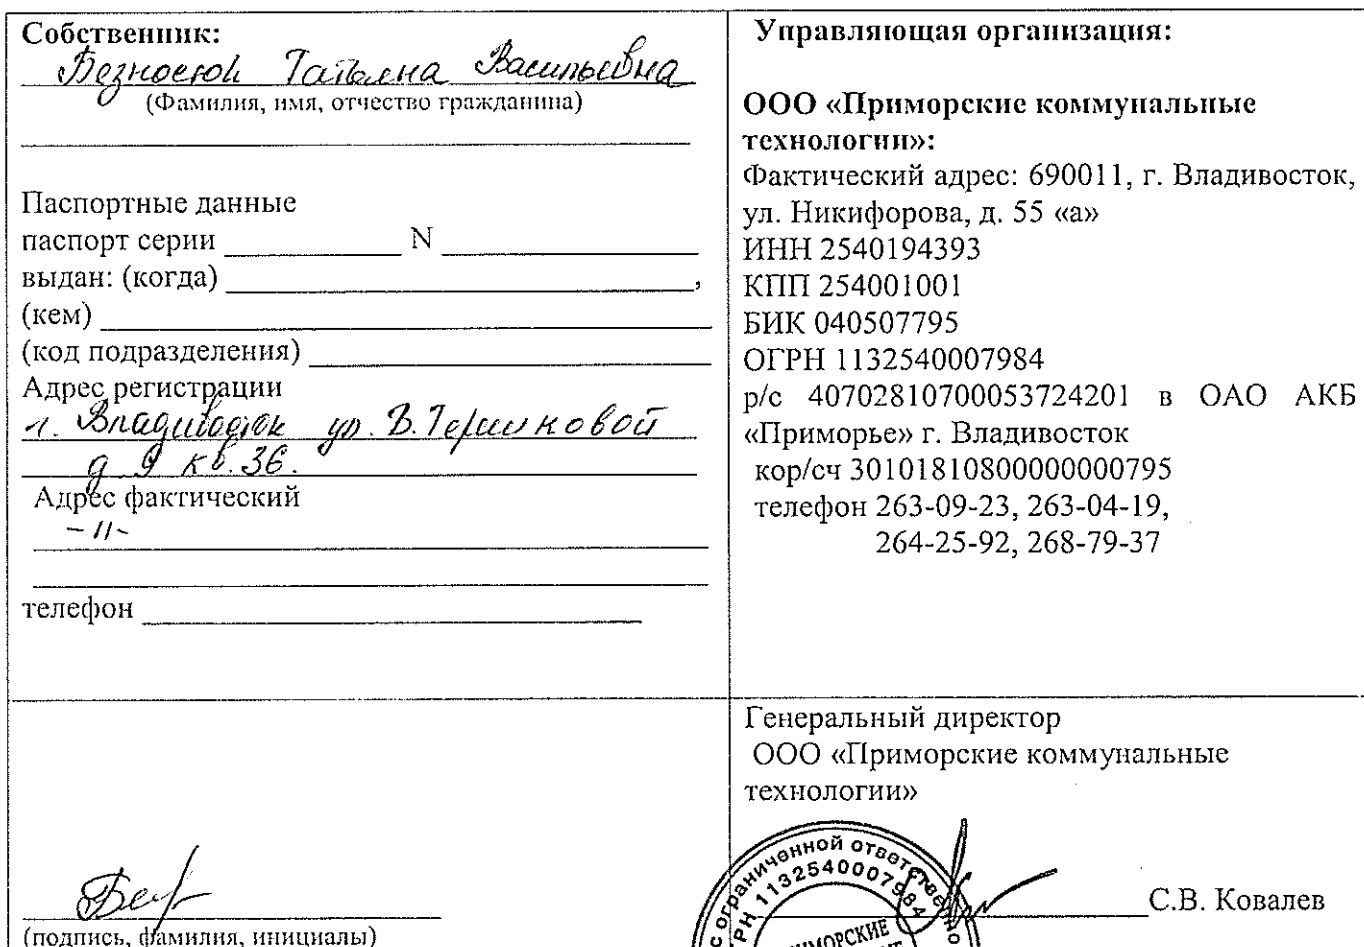 Собственник:
Безносюк Татьяна Васильевна
(Фамилия, имя, отчество гражданина)
Паспортные данные
паспорт серии ____________ N ____________
выдан: (когда) ____________,
(кем) ____________
(код подразделения) ____________
Адрес регистрации
г. Владивосток ул. В. Терешковой
д 9 кв. 36.
Адрес фактический
-11-
телефон ____________
Управляющая организация:
ООО «Приморские коммунальные
технологии»:
Фактический адрес: 690011, г. Владивосток,
ул. Никифорова, д. 55 «а»
ИНН 2540194393
КПП 254001001
БИК 040507795
ОГРН 1132540007984
р/с 40702810700053724201 в ОАО АКБ
«Приморье» г. Владивосток
кор/сч 30101810800000000795
телефон 263-09-23, 263-04-19,
264-25-92, 268-79-37
(подпись, фамилия, инициалы)
Генеральный директор
ООО «Приморские коммунальные
технологии»
С.В. Ковалев
с ограниченной ответственно
ОГРН 1132540007984
ПРИМОРСКИЕ